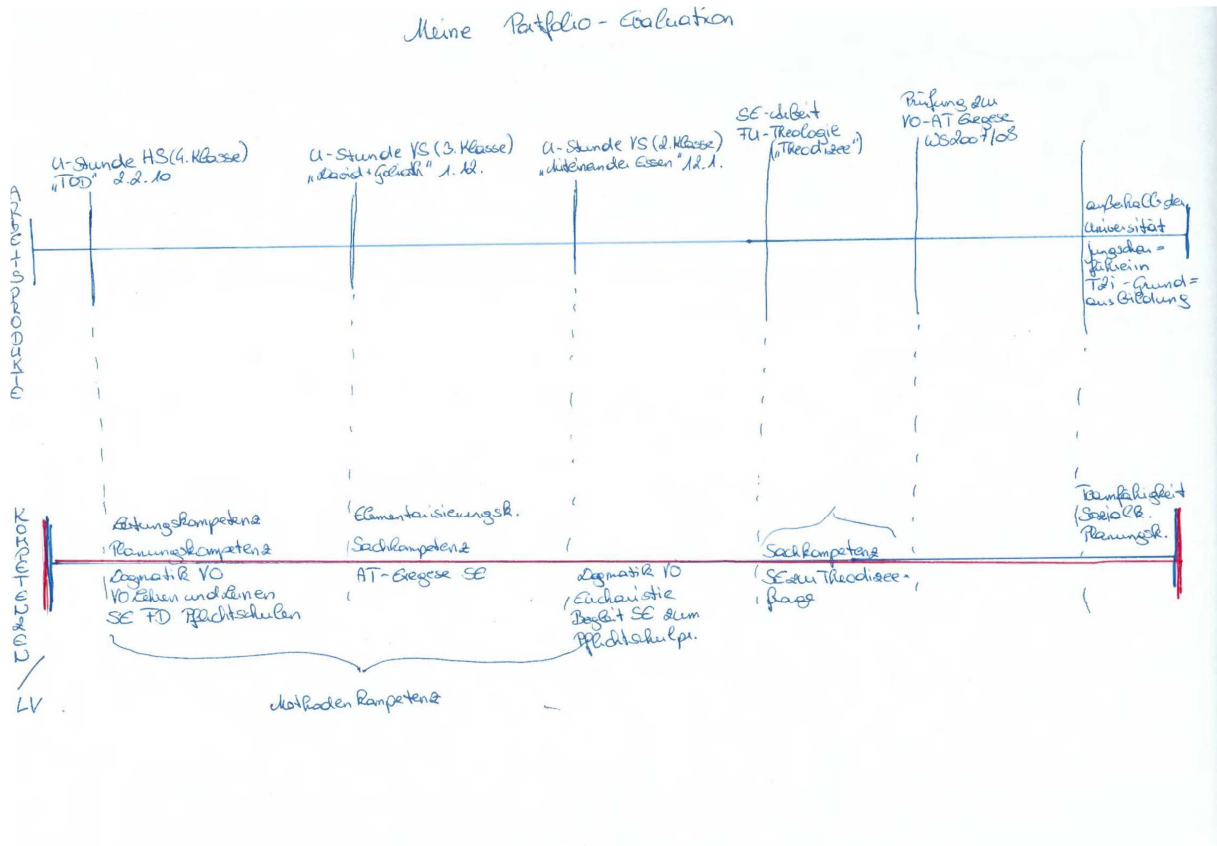 Meine Portfolio-Evaluation
U-Stunde HS (4. Klasse)
„TOD" 2.2.10
U-Stunde VS (3. Klasse)
„David + Goliath" 1.12.
U-Stunde VS (2. Klasse)
„Miteinander Essen" 12.1.
SE-Arbeit
FU-Theologie
(„Theodizee")
Prüfung zur
VO-AT Exegese
WS2007/08
außerhalb der
Universität
Jungschar=
führerin
TZI-Grund=
ausbildung
ARBEITSPRODUKTE
KOMPETENZEN / LV
Leitungskompetenz
Planungskompetenz
Dogmatik VO
VO Lehren und Lernen
SE FD Pflichtschulen
Elementarisierungsk.
Sachkompetenz
AT-Exegese SE
Dogmatik VO
Eucharistie
Begleit SE zum
Pflichtschulpr.
Sachkompetenz
SE zur Theodizee-
frage
Teamfähigkeit
Sozialk.
Planungsk.
Methodenkompetenz